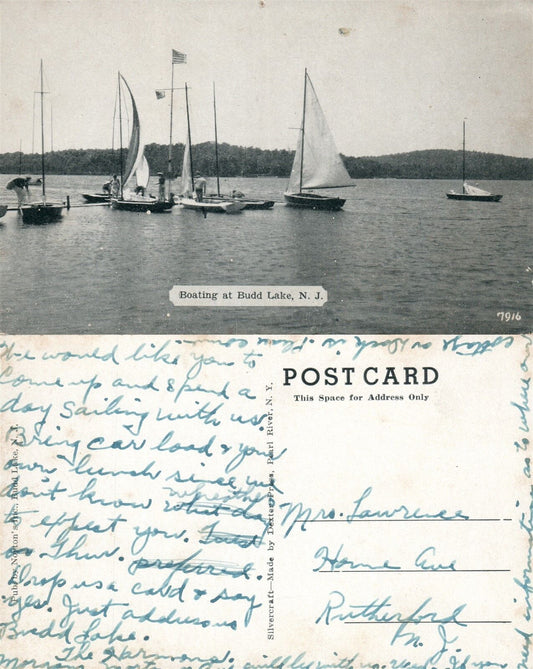 Boating at Budd Lake, N. J.
7916
We would like you to
Come up and spend a
day Sailing with us.
Bring car load & your
own lunch since we
don't know whether
what day
to expect you. Tues
or Thur. preferred.
Drop us a card & say
yes. Just address us
Budd Lake.
The Harmons.
POST CARD
This Space for Address Only
Mrs. Lawrence
Home Ave
Rutherford
N. J.
Pub. by Norton's Inc., Budd Lake, N. J.
Silvercraft—Made by Dexter Press, Pearl River, N. Y.
will be with us
information as to where our
cottage or dock is.